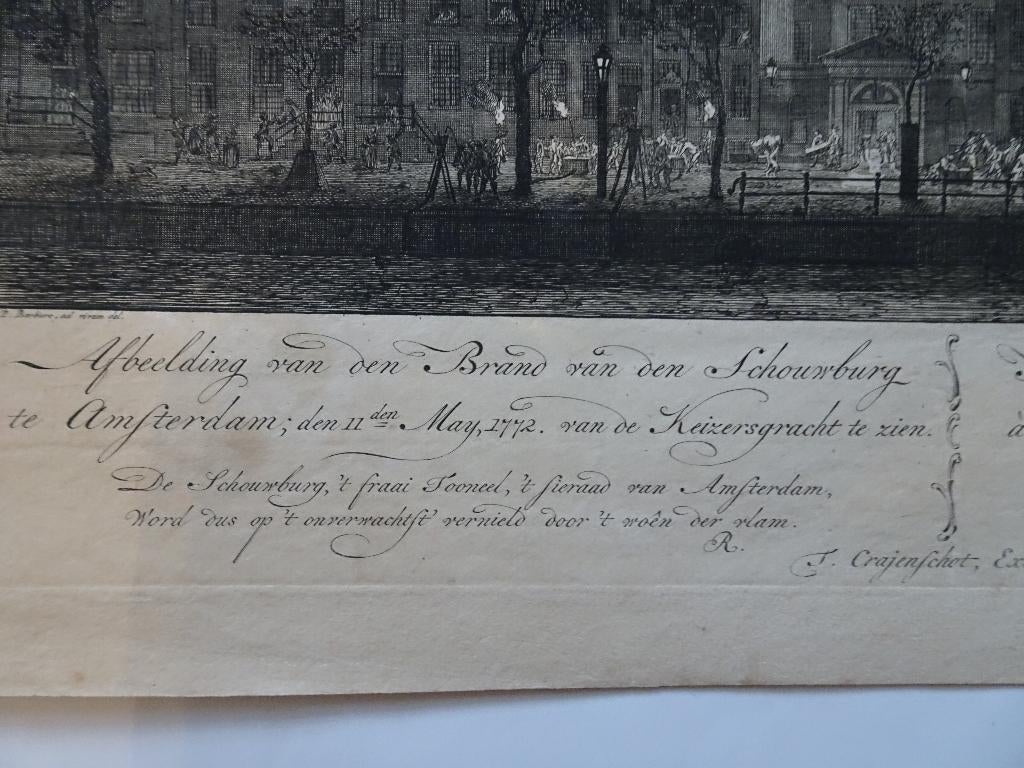 P. Barbiers, ad vivum del.
Afbeelding van den Brand van den Schouwburg
te Amſterdam; den 11den May, 1772. van de Keizersgracht te zien.
à
De Schouwburg, 't fraai Tooneel, 't ſieraad van Amſterdam,
Word dus op 't onverwachtſt' vernield door 't woên der vlam.
R.
T. Crajenſchot, Ex